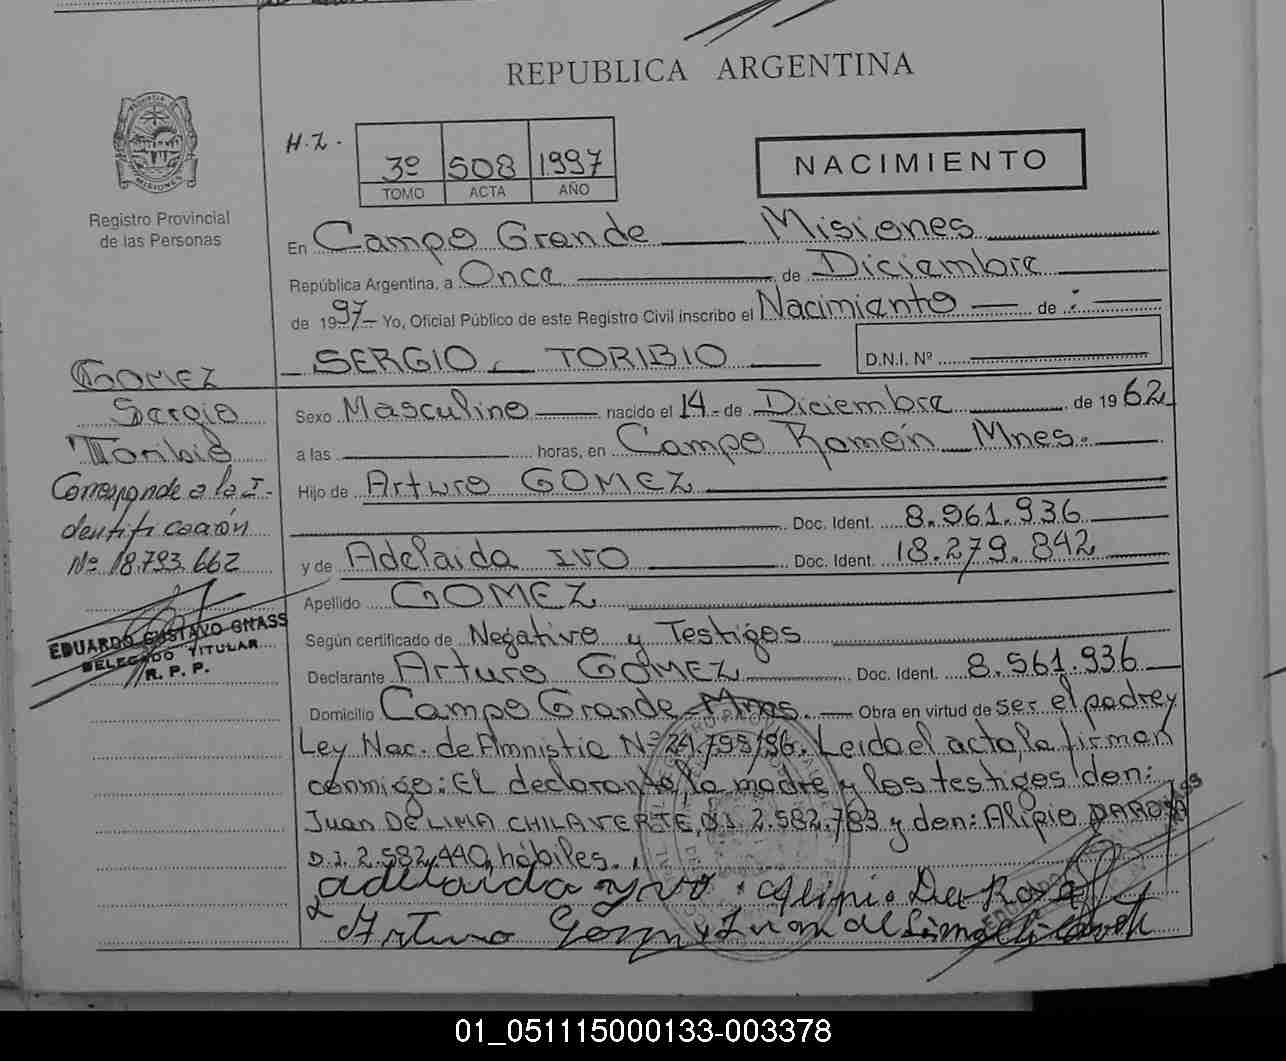 REPUBLICA ARGENTINA
H.Z.
3º 508 1997
TOMO ACTA AÑO
NACIMIENTO
Registro Provincial
de las Personas
En Campo Grande Misiones
República Argentina, a Once de Diciembre
de 1997 Yo, Oficial Público de este Registro Civil inscribo el Nacimiento de :
SERGIO TORIBIO D.N.I. Nº
GOMEZ
Sergio
Toribio
Corresponde a la I-
dentificación
Nº 18.793.662
EDUARDO GUSTAVO GNASS
DELEGADO TITULAR
R. P. P.
Sexo Masculino nacido el 14 de Diciembre de 1962
a las horas, en Campo Ramón Mnes.
Hijo de Arturo GOMEZ
Doc. Ident. 8.961.936
y de Adelaida IVO Doc. Ident. 18.279.842
Apellido GOMEZ
Según certificado de Negativo y Testigos
Declarante Arturo GOMEZ Doc. Ident. 8.561.936
Domicilio Campo Grande Mnes. Obra en virtud de ser el padre y
Ley Nac. de Amnistia Nº 24.755/96. Leida el acta, la firman
conmigo: El declarante, la madre y los testigos don:
Juan DE LIMA CHILAVERTE, D.I. 2.582.783 y don: Alipio DAROSA
D.I. 2.582.440, hábiles.
adelaida yvo Alipio Da Rosa
Arturo Gomez Juan de Lima
01_051115000133-003378